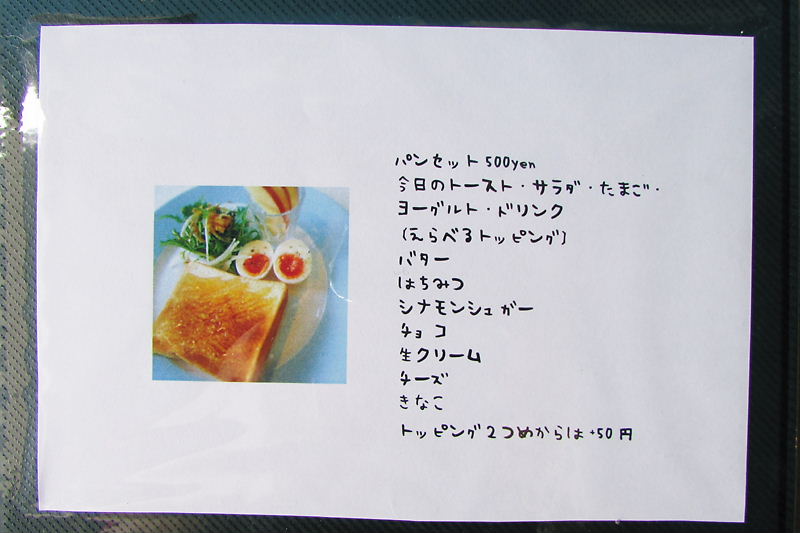 パンセット500yen
今日のトースト・サラダ・たまご・
ヨーグルト・ドリンク
(えらべるトッピング)
バター
はちみつ
シナモンシュガー
チョコ
生クリーム
チーズ
きなこ
トッピング2つめからは+50円